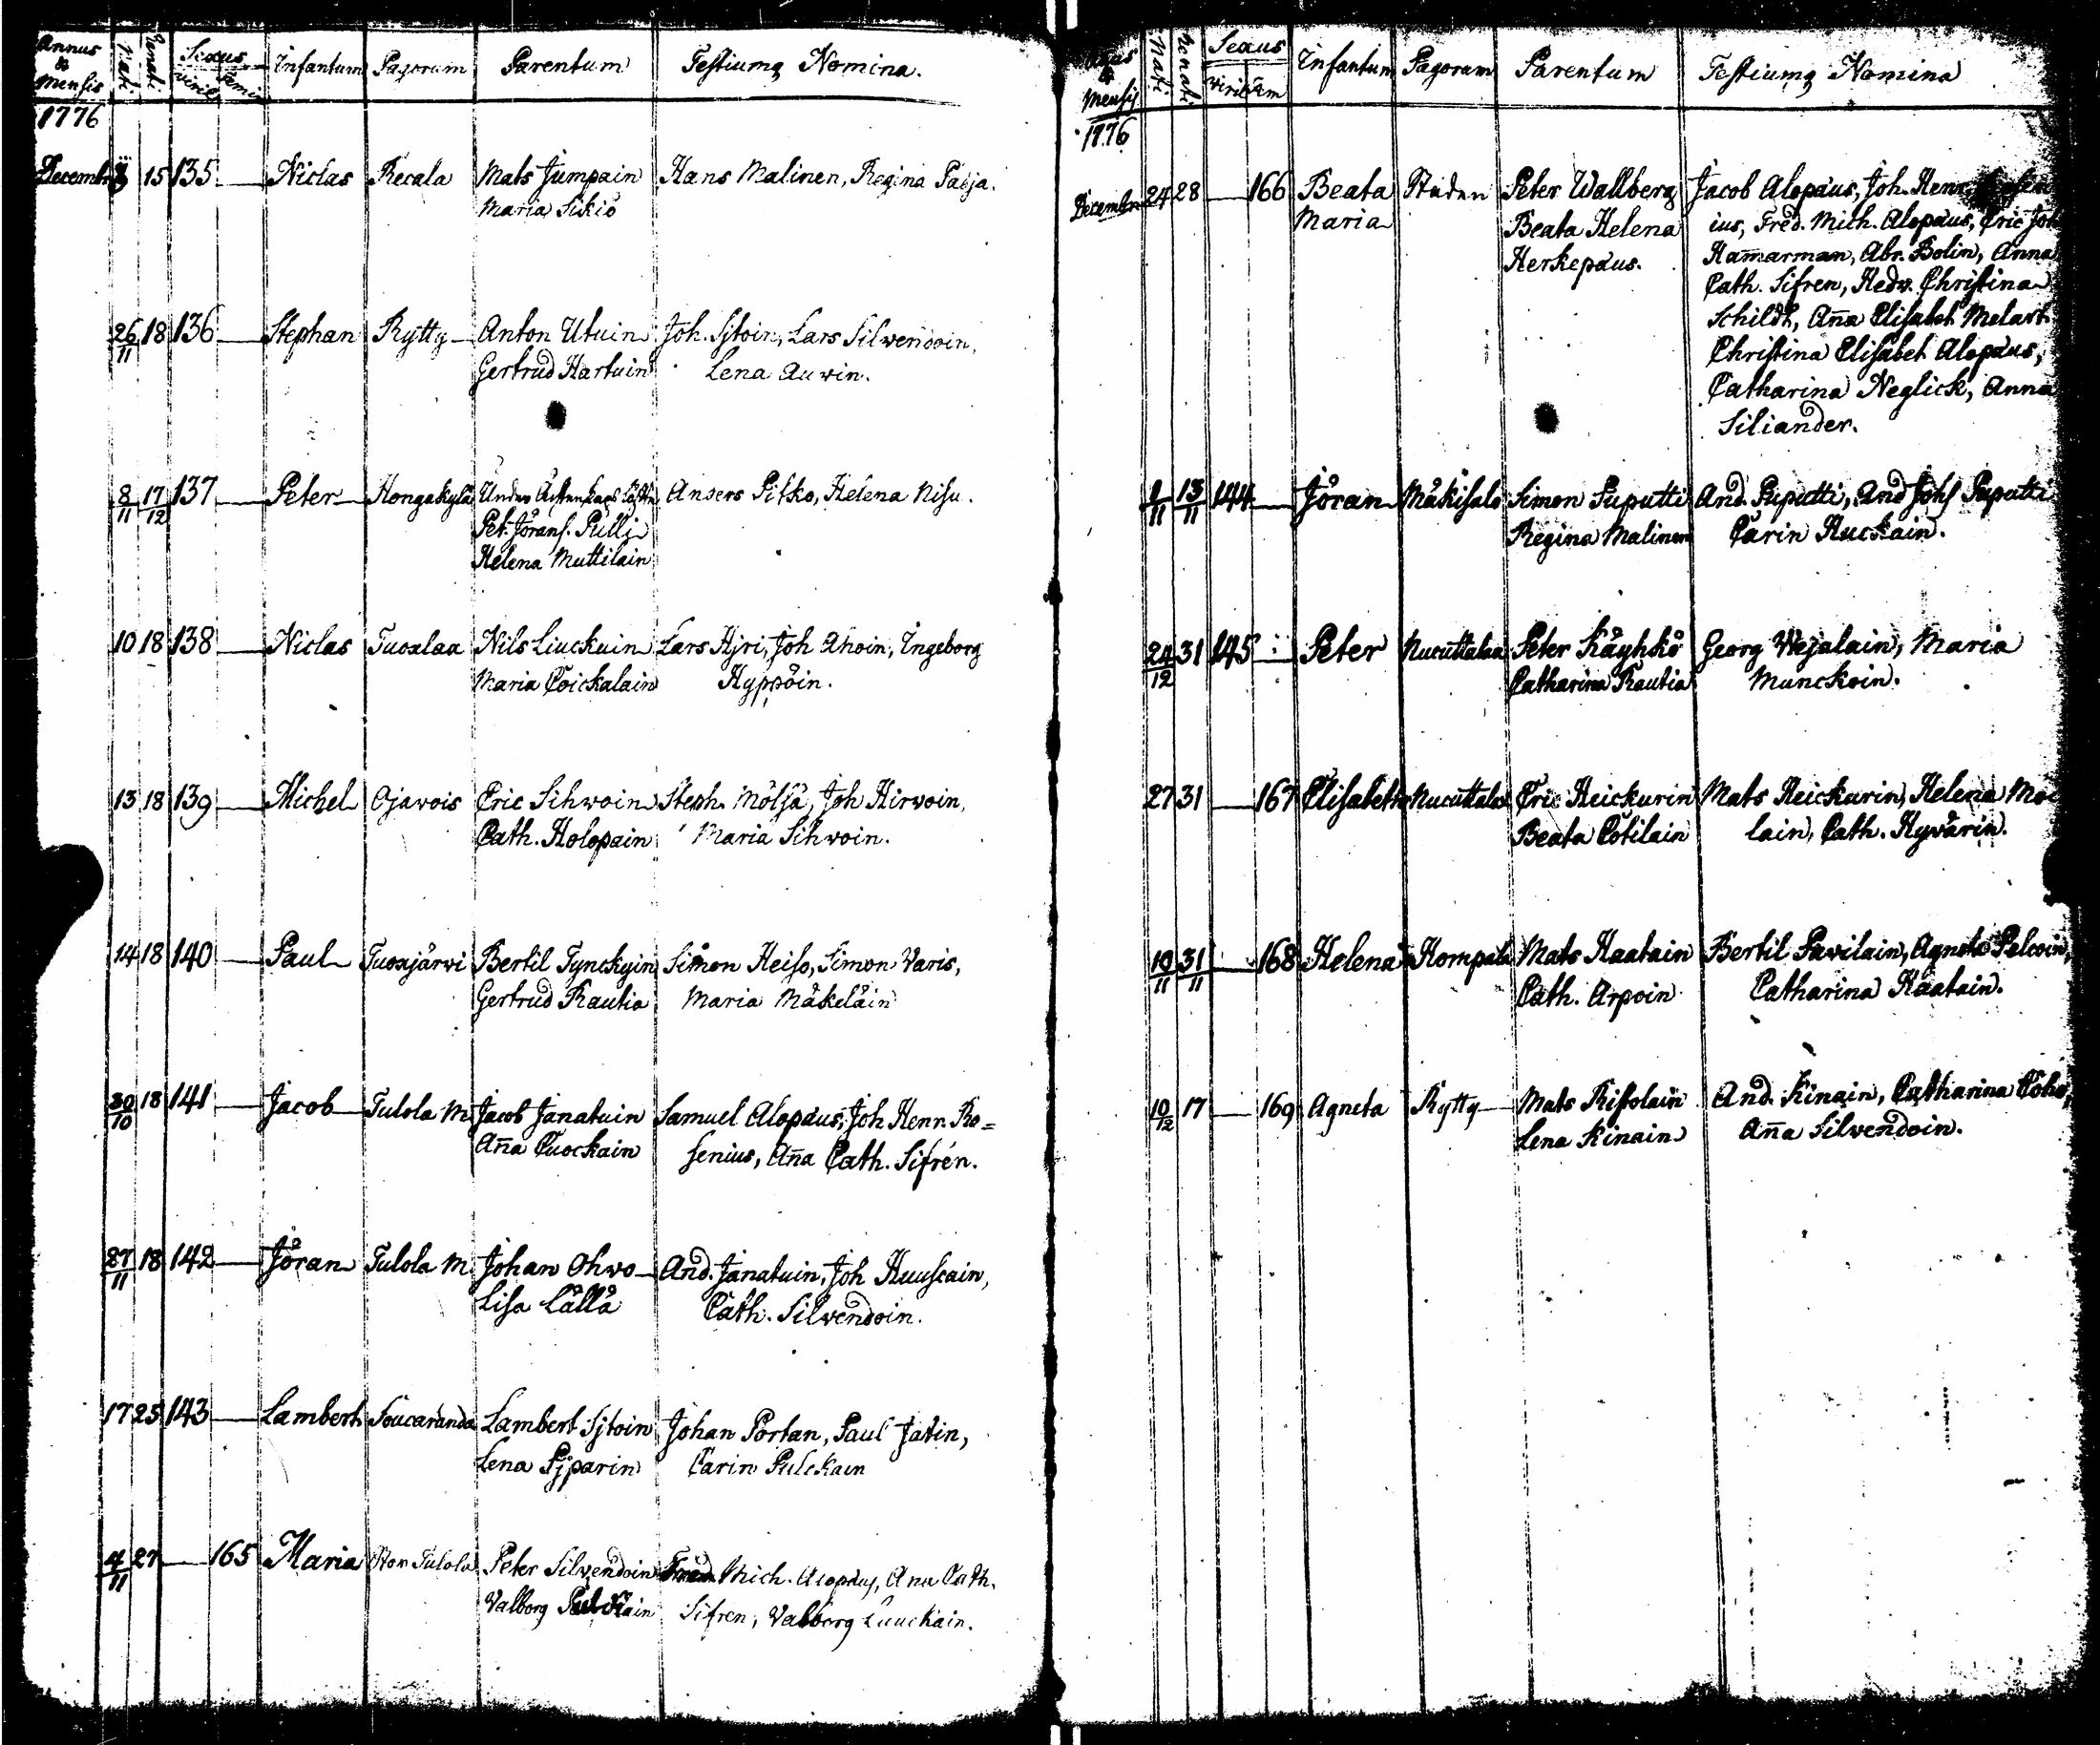 Annus & Mensis Nati. Renati. Sexus viril. Femin Infantum Pagorum Parentum Testiumq Nomina.
1776
Decembr 15 135 Niclas Recala Mats Jumpain Hans Malinen, Regina Paija.
Maria Sikiö
26/11 18 136 Stephan Rytty Anton Utuin Joh. Sjtoin, Lars Silwendoin,
Gertrud Hartuin Lena Auvin.
8/11 17/12 137 Peter Hongakylä Anders Pitko, Helena Nisu.
Pet. Jöransf. Pulli
Helena Muttilain
10 18 138 Niclas Tuoxlax Nils Liuckuin Lars Hjri, Joh Ahoin, Ingeborg
Maria Coickalain Hyppöin.
13 18 139 Michel Ojavois Eric Sihwoin Steph. Mölsä, Joh Hirwoin,
Cath. Holopain Maria Sihwoin.
14 18 140 Paul Tuoxjärwi Bertil Tynckyin Simon Heiso, Simon Varis,
Gertrud Rautia Maria Mäkeläin
30/10 18 141 Jacob Tulola M Jacob Janatuin Samuel Alopæus, Joh Henr. Ro=
Aña Cuockain senius, Aña Cath. Sifrén.
27/11 18 142 Jöran Tulola M Johan Ohvo And. Janatuin, Joh Huuscain,
Lisa Lällä Cath. Silvendoin.
17 25 143 Lambert Soucaranda Lambert Sjtoin Johan Portan, Paul Jatin,
Lena Pjparin Carin Pulckain
4/11 27 165 Maria Stor Tulola Peter Silvendoin Mich. Alopæus, Ana Cath.
Valborg Sifren, Valborg Luuckain.
Mensis Nati. Renati. Sexus viril. Fem Infantum Pagorum Parentum Testiumq Nomina
1776
Decembr 24 28 166 Beata Staden Peter Wallberg Jacob Alopæus, Joh. Henr.
Maria Beata Helena ius, Fred. Mich. Alopæus, Eric Joh
Herkepæus. Hamarman, Abr. Bolin, Anna
Cath. Sifren, Hedv. Christina
Schildt, Aña Elisabet Melart
Christina Elisabet Alopæus,
Catharina Neglick, Anna
Siliander.
1/11 13/11 144 Jöran Mäkisalo Simon Puputti And. Puputti, And Johs Puputti
Regina Malinen Carin Huckain.
24/12 31 145 Peter Nucuttalax Peter Käyhkö Georg Wejalain, Maria
Catharina Rautia Munckoin.
27 31 167 Elisabeth Nucuttalax Eric Heickurin Mats Heickurin, Helena Mo
Beata Cotilain lain, Cath. Hyvärin.
10/11 31/11 168 Helena Kompala Mats Haatain Bertil Pavilain, Agneta Pelcoin,
Cath. Arpoin Catharina Haatain.
10/12 17 169 Agneta Rytty Mats Ristolain And. Kinain, Catharina Coho,
Lena Kinain Aña Silvendoin.